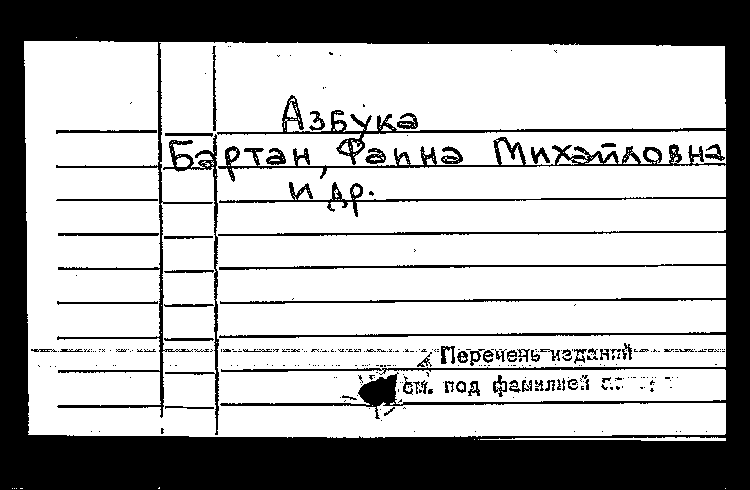 Азбука
Бартан, Фаина Михайловна
и др.
Перечень изданий
см. под фамилией